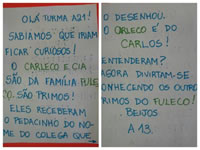 OLÁ TURMA A21!
SABÍAMOS QUE IRIAM
FICAR CURIOSOS!
O CARLECO E CIA
SÃO DA FAMÍLIA FULE
NO. SÃO PRIMOS!
ELES RECEBERAM
O PEDACINHO DO NO-
ME DO COLEGA QUE
O DESENHOU.
O CARLECO É DO
CARLOS!
ENTENDERAM?
AGORA DIVIRTAM-SE
CONHECENDO OS OUTRO
PRIMOS DO FULECO!
BEIJOS
A 13.